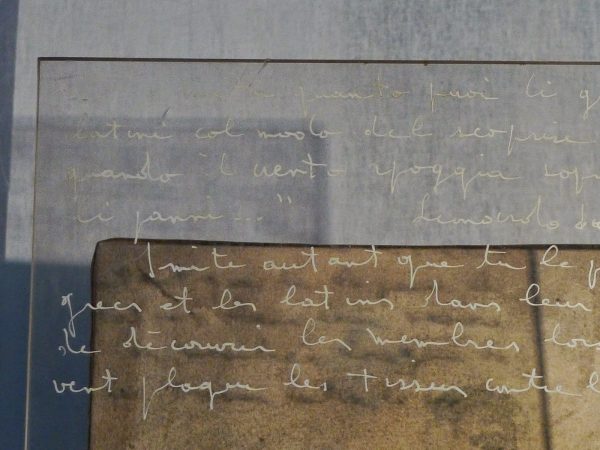 imita quanto puoi li g
latini col modo del scoprire
quando il vento apoggia sopr
li panni..." Leonardo da
Imite autant que tu le p
grecs et les latins dans leur
de découvrir les membres lors
vent plaque les tissus contre l